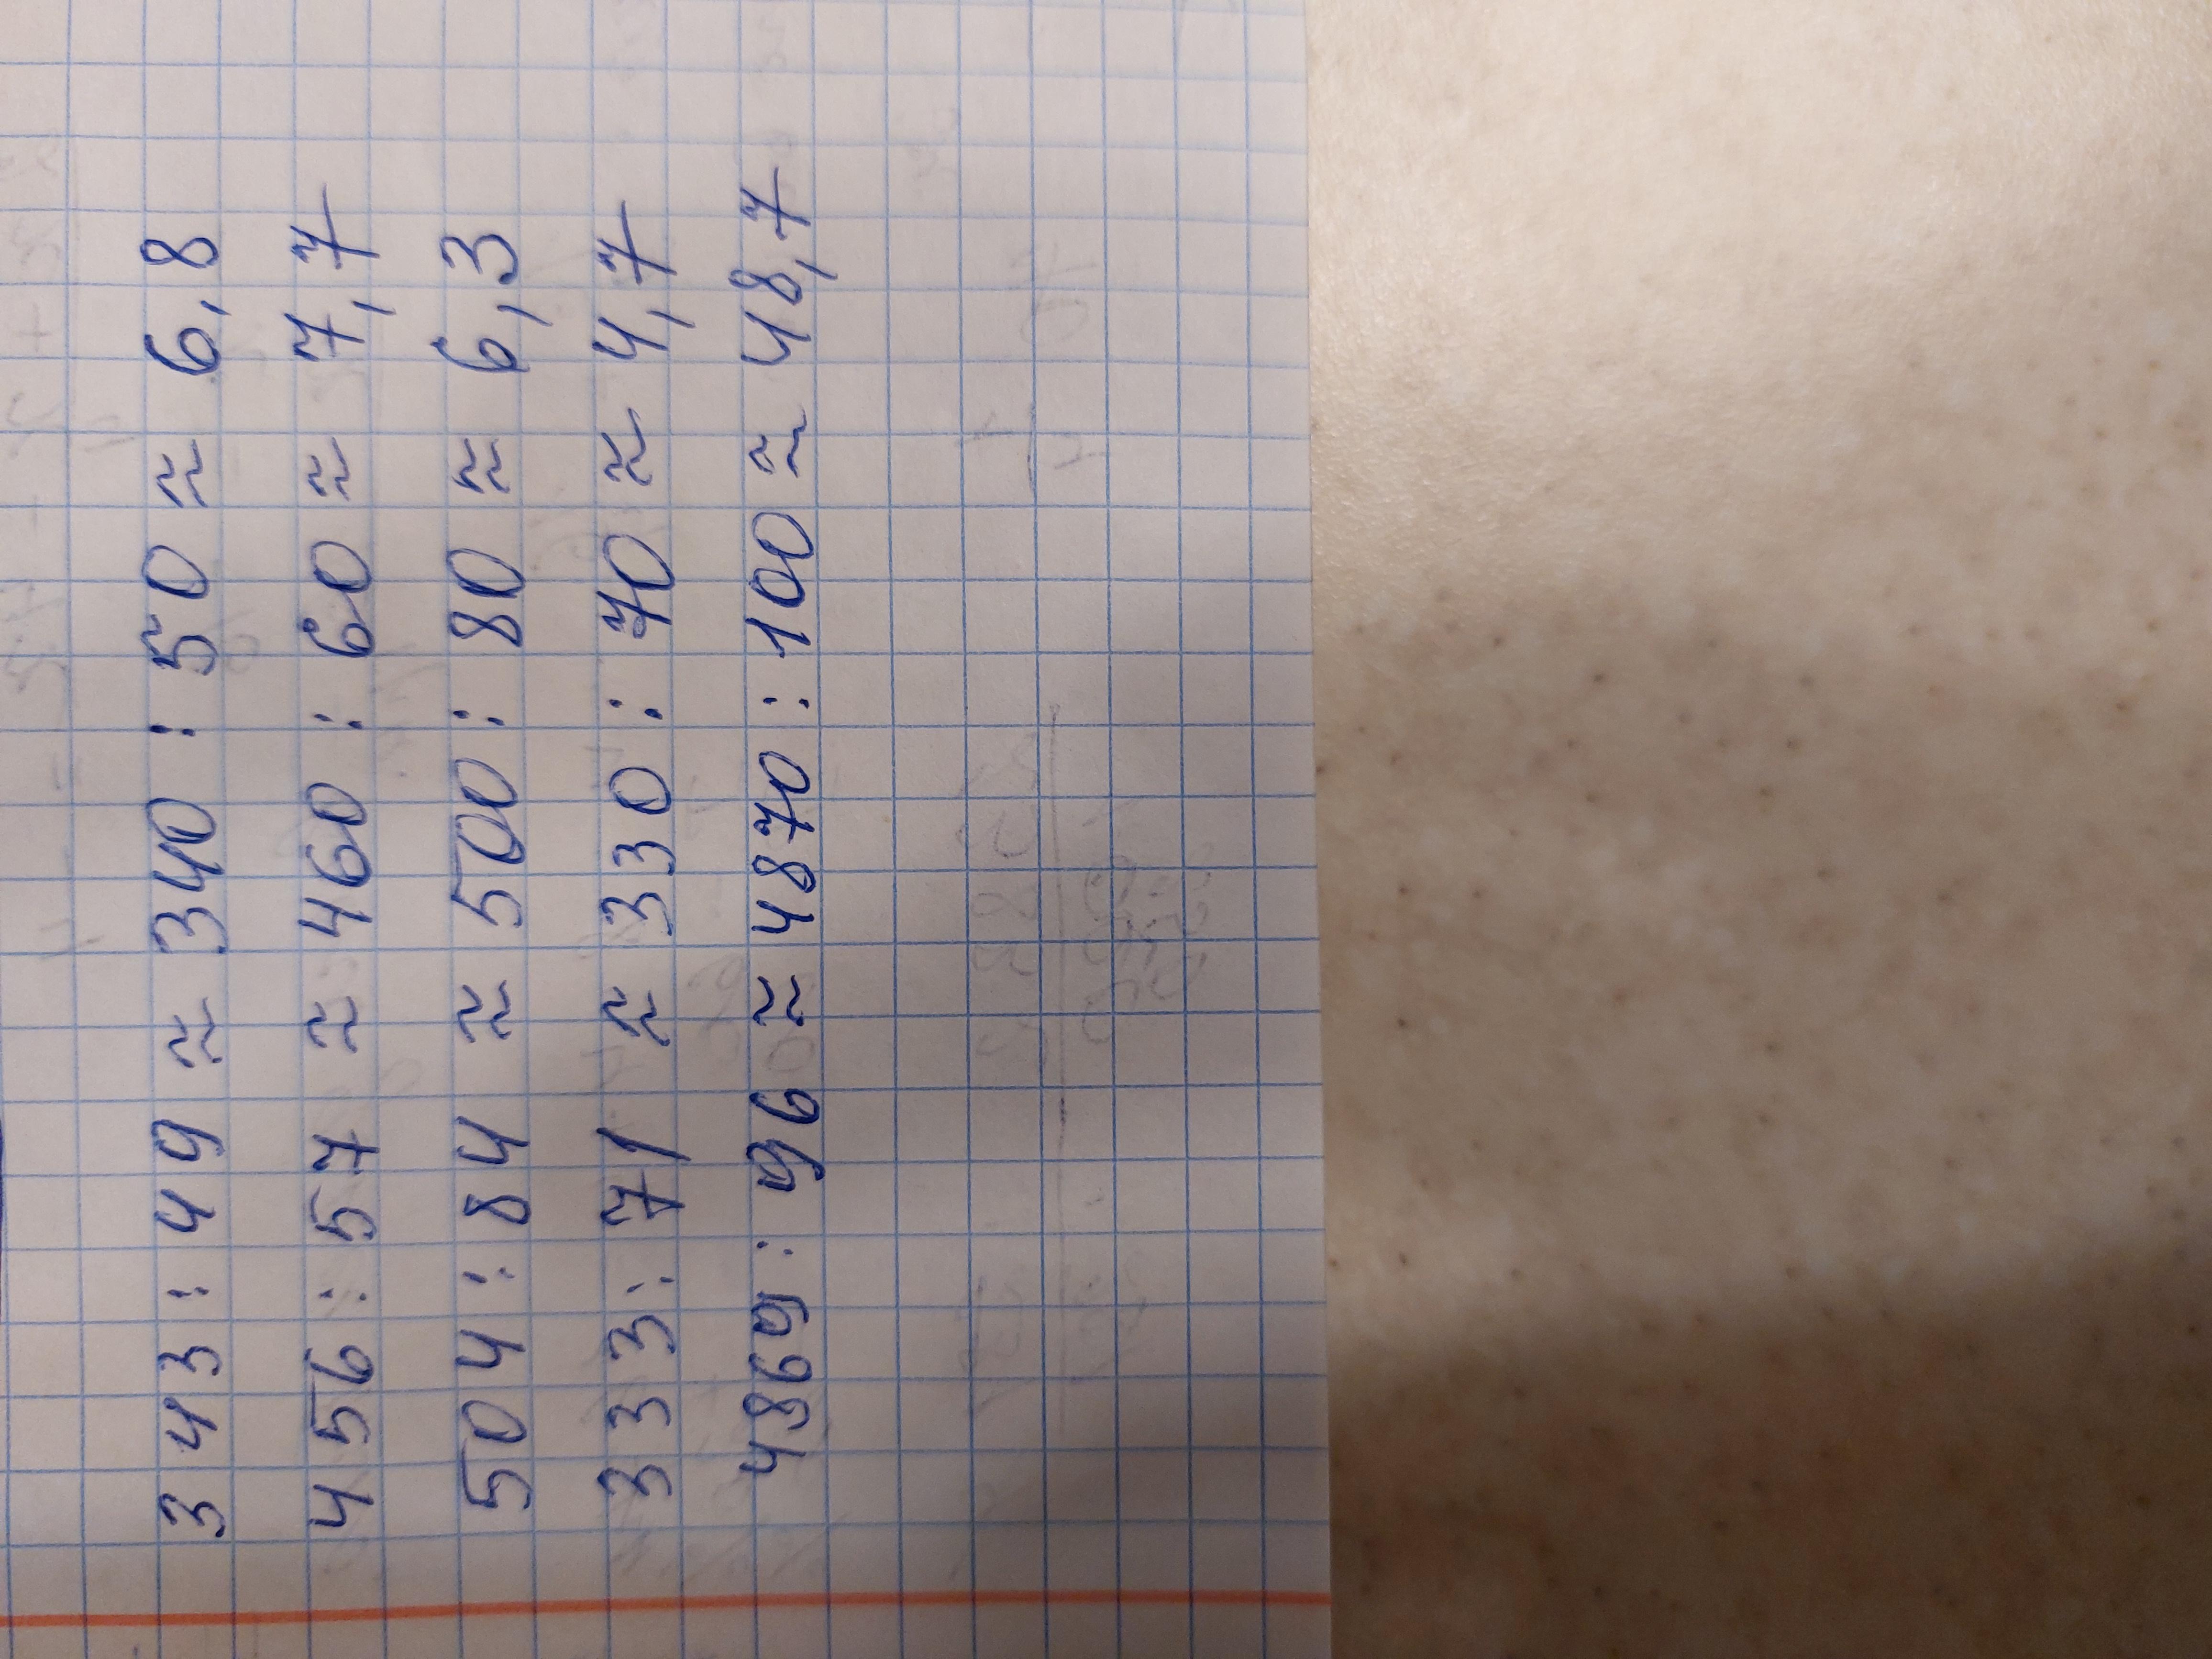 343 : 49 ≈ 340 : 50 ≈ 6,8
456 : 57 ≈ 460 : 60 ≈ 7,7
504 : 84 ≈ 500 : 80 ≈ 6,3
333 : 71 ≈ 330 : 70 ≈ 4,7
4869 : 96 ≈ 4870 : 100 ≈ 48,7